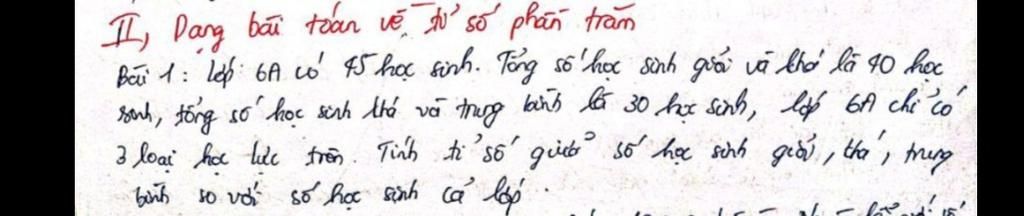 II, Dạng bài toán về tỉ số phần trăm
Bài 1: lớp 6A có 45 học sinh. Tổng số học sinh giỏi và khá là 40 học
sinh, tổng số học sinh khá và trung bình là 30 học sinh, lớp 6A chỉ có
3 loại học lực trên. Tính tỉ số giữa số học sinh giỏi, khá, trung
bình so với số học sinh cả lớp.